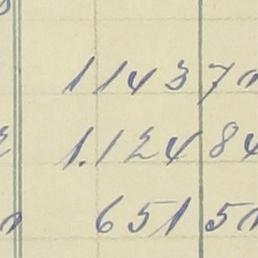 11437
1.12484
6515